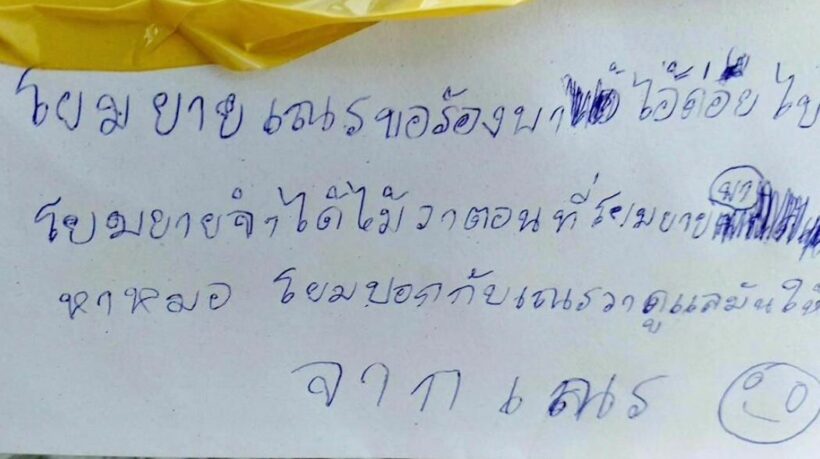 โยมยายเณรขอร้องพาไอ้ด่อยไป
โยมยายจำได้ไม้วาตอนที่โยมยายพา
หาหมอ โยมบอกกับเณรวาดูแลมันให้
จากเณร